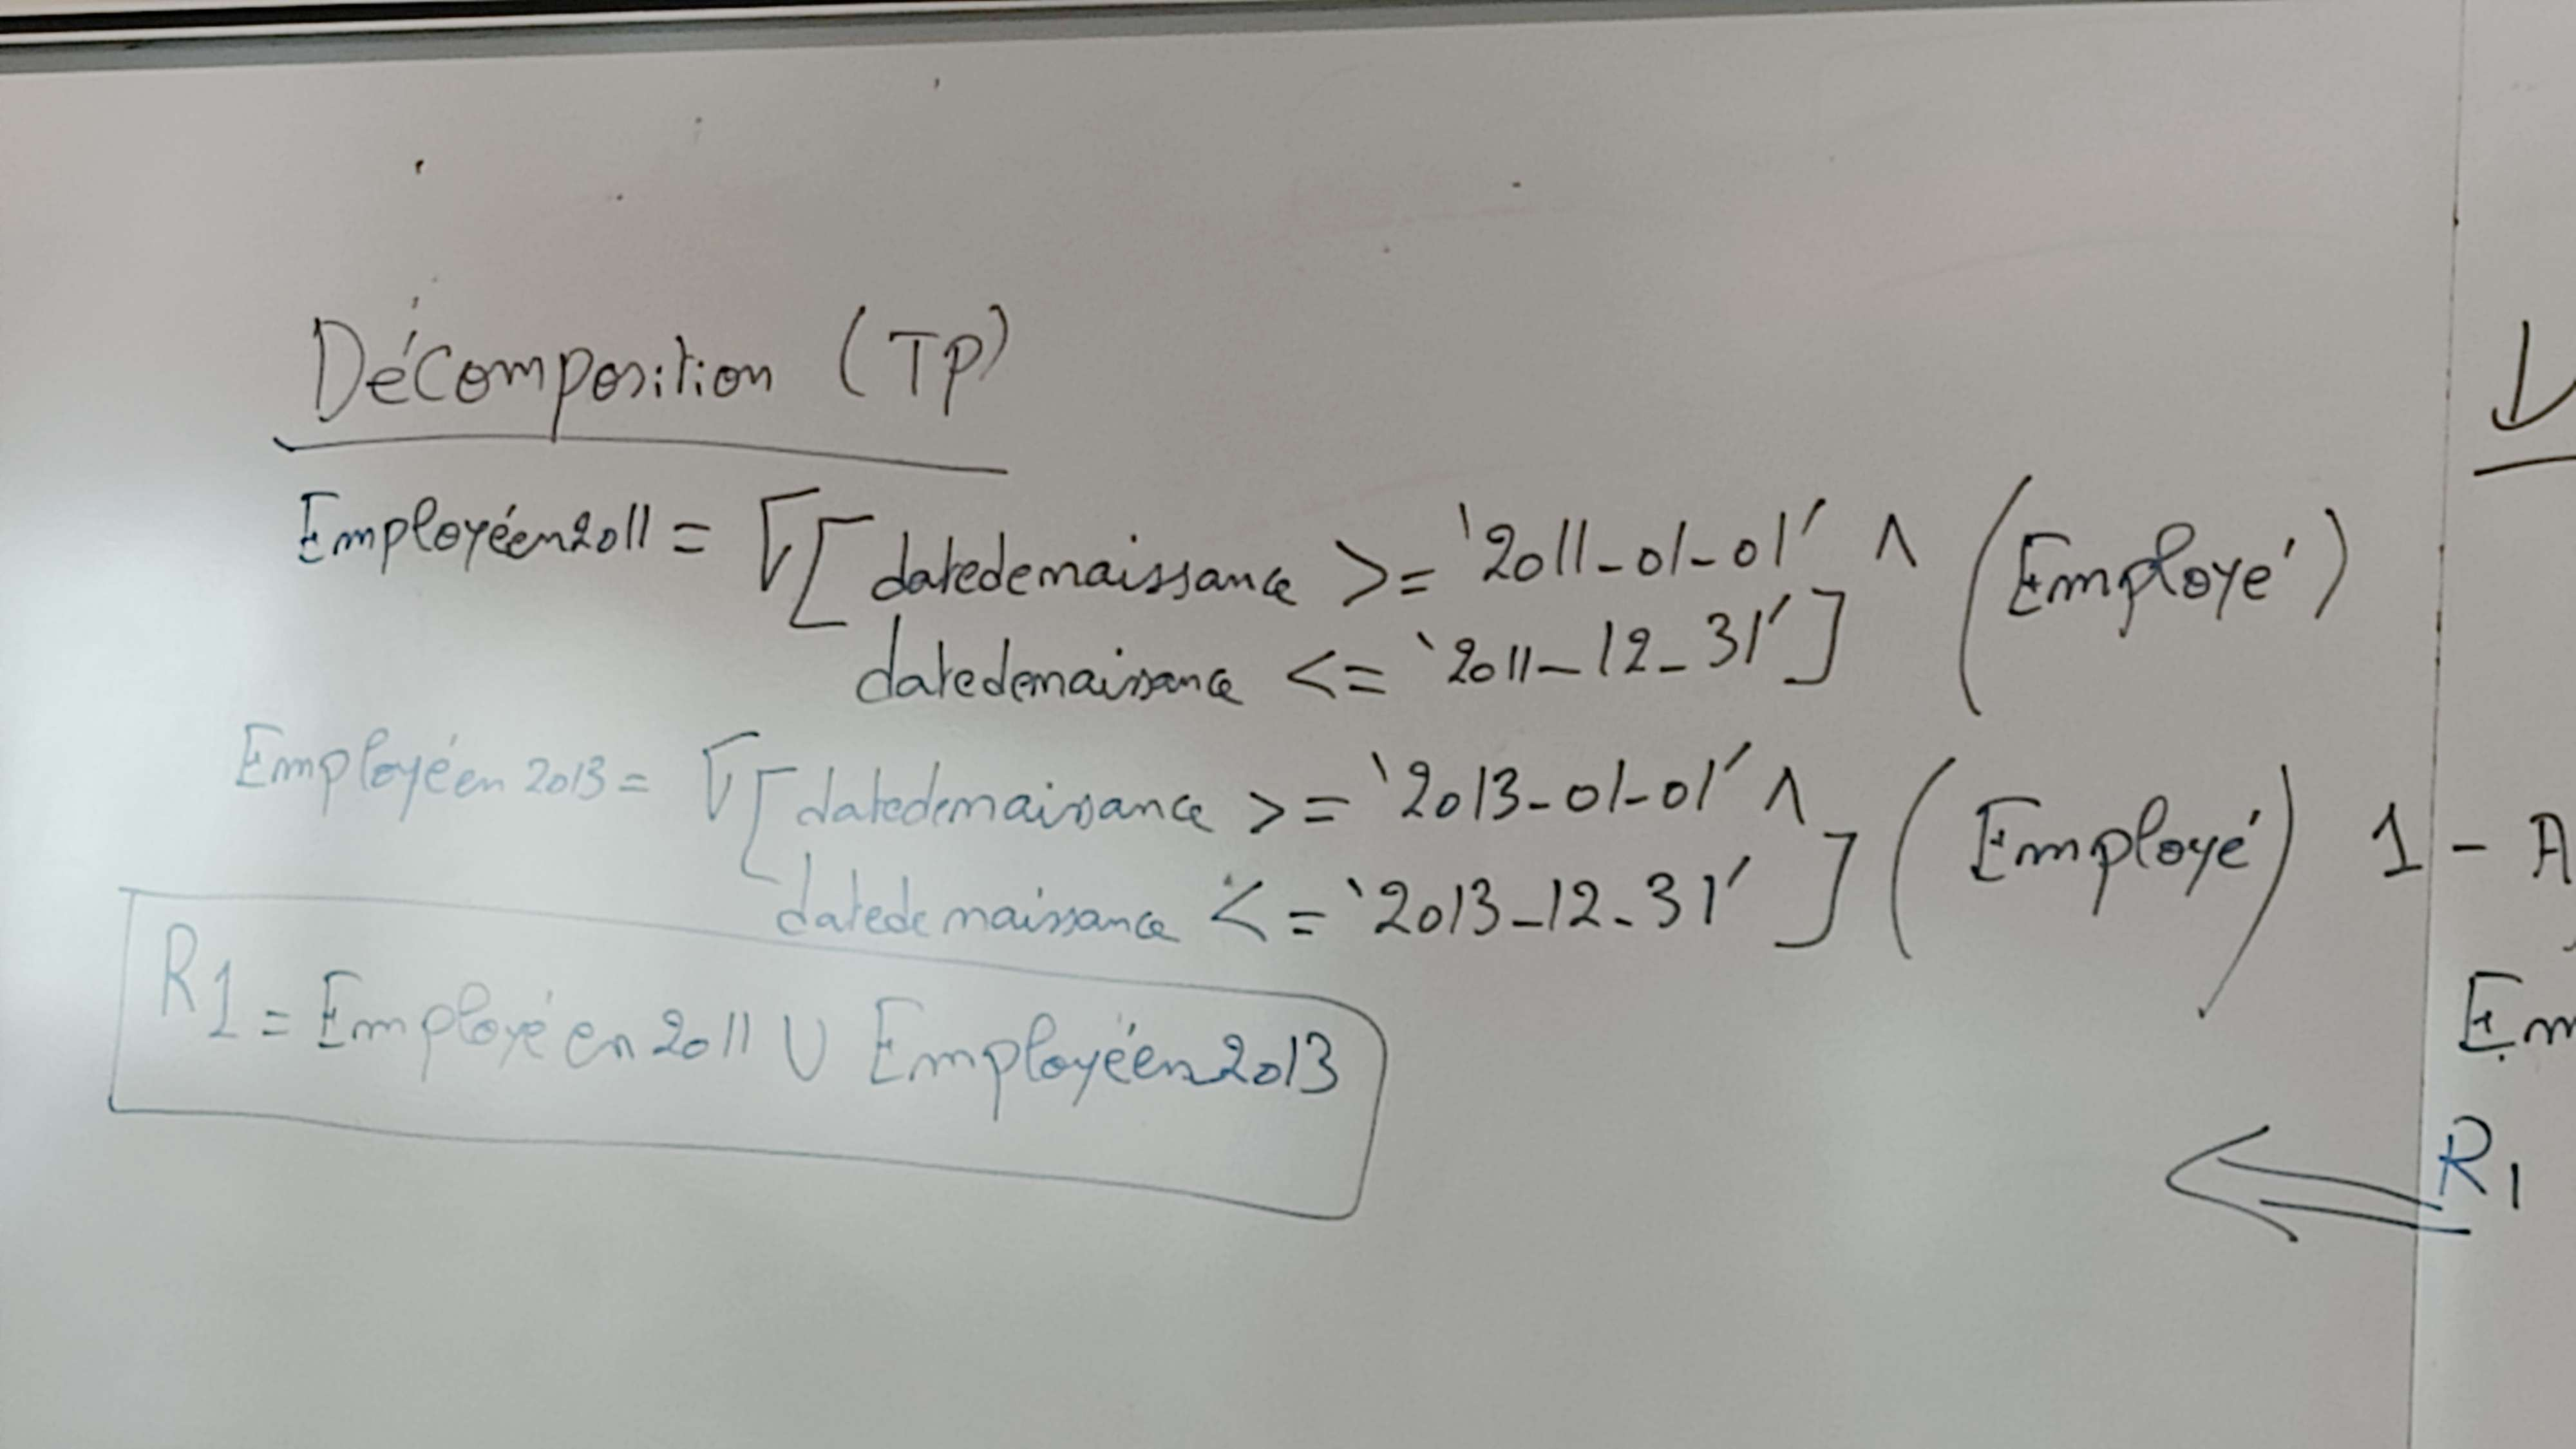 Décomposition (TP)
Employéen2011 = σ[datedenaissance >= '2011-01-01' ∧ (Employé)
datedenaissance <= '2011-12-31']
Employéen2013 = σ[datedenaissance >= '2013-01-01' ∧
datedenaissance <= '2013-12-31'] (Employé)
R1 = Employéen2011 ∪ Employéen2013
1 - A
Em
R1